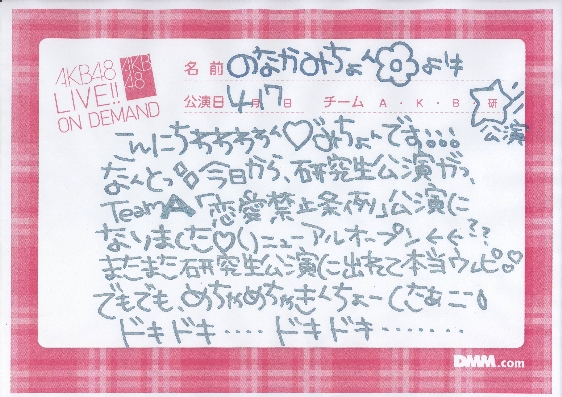 AKB48
LIVE!!
ON DEMAND
AKB
48
名前 のなかみちょんよりは
公演日 4月17日 チーム A・K・B・研
公演
こんにちわわわわん♡みちょんです
なんとっ 今日から、研究生公演がっ、
TeamA「恋愛禁止条例」公演に
なりました♡リニューアルオープン
またまた研究生公演に出れて本当ウレピ♡
でもでも、めちゃめちゃきんちょーしたぁ
ドキドキ‥‥‥ ドキドキ‥‥‥‥
DMM.com